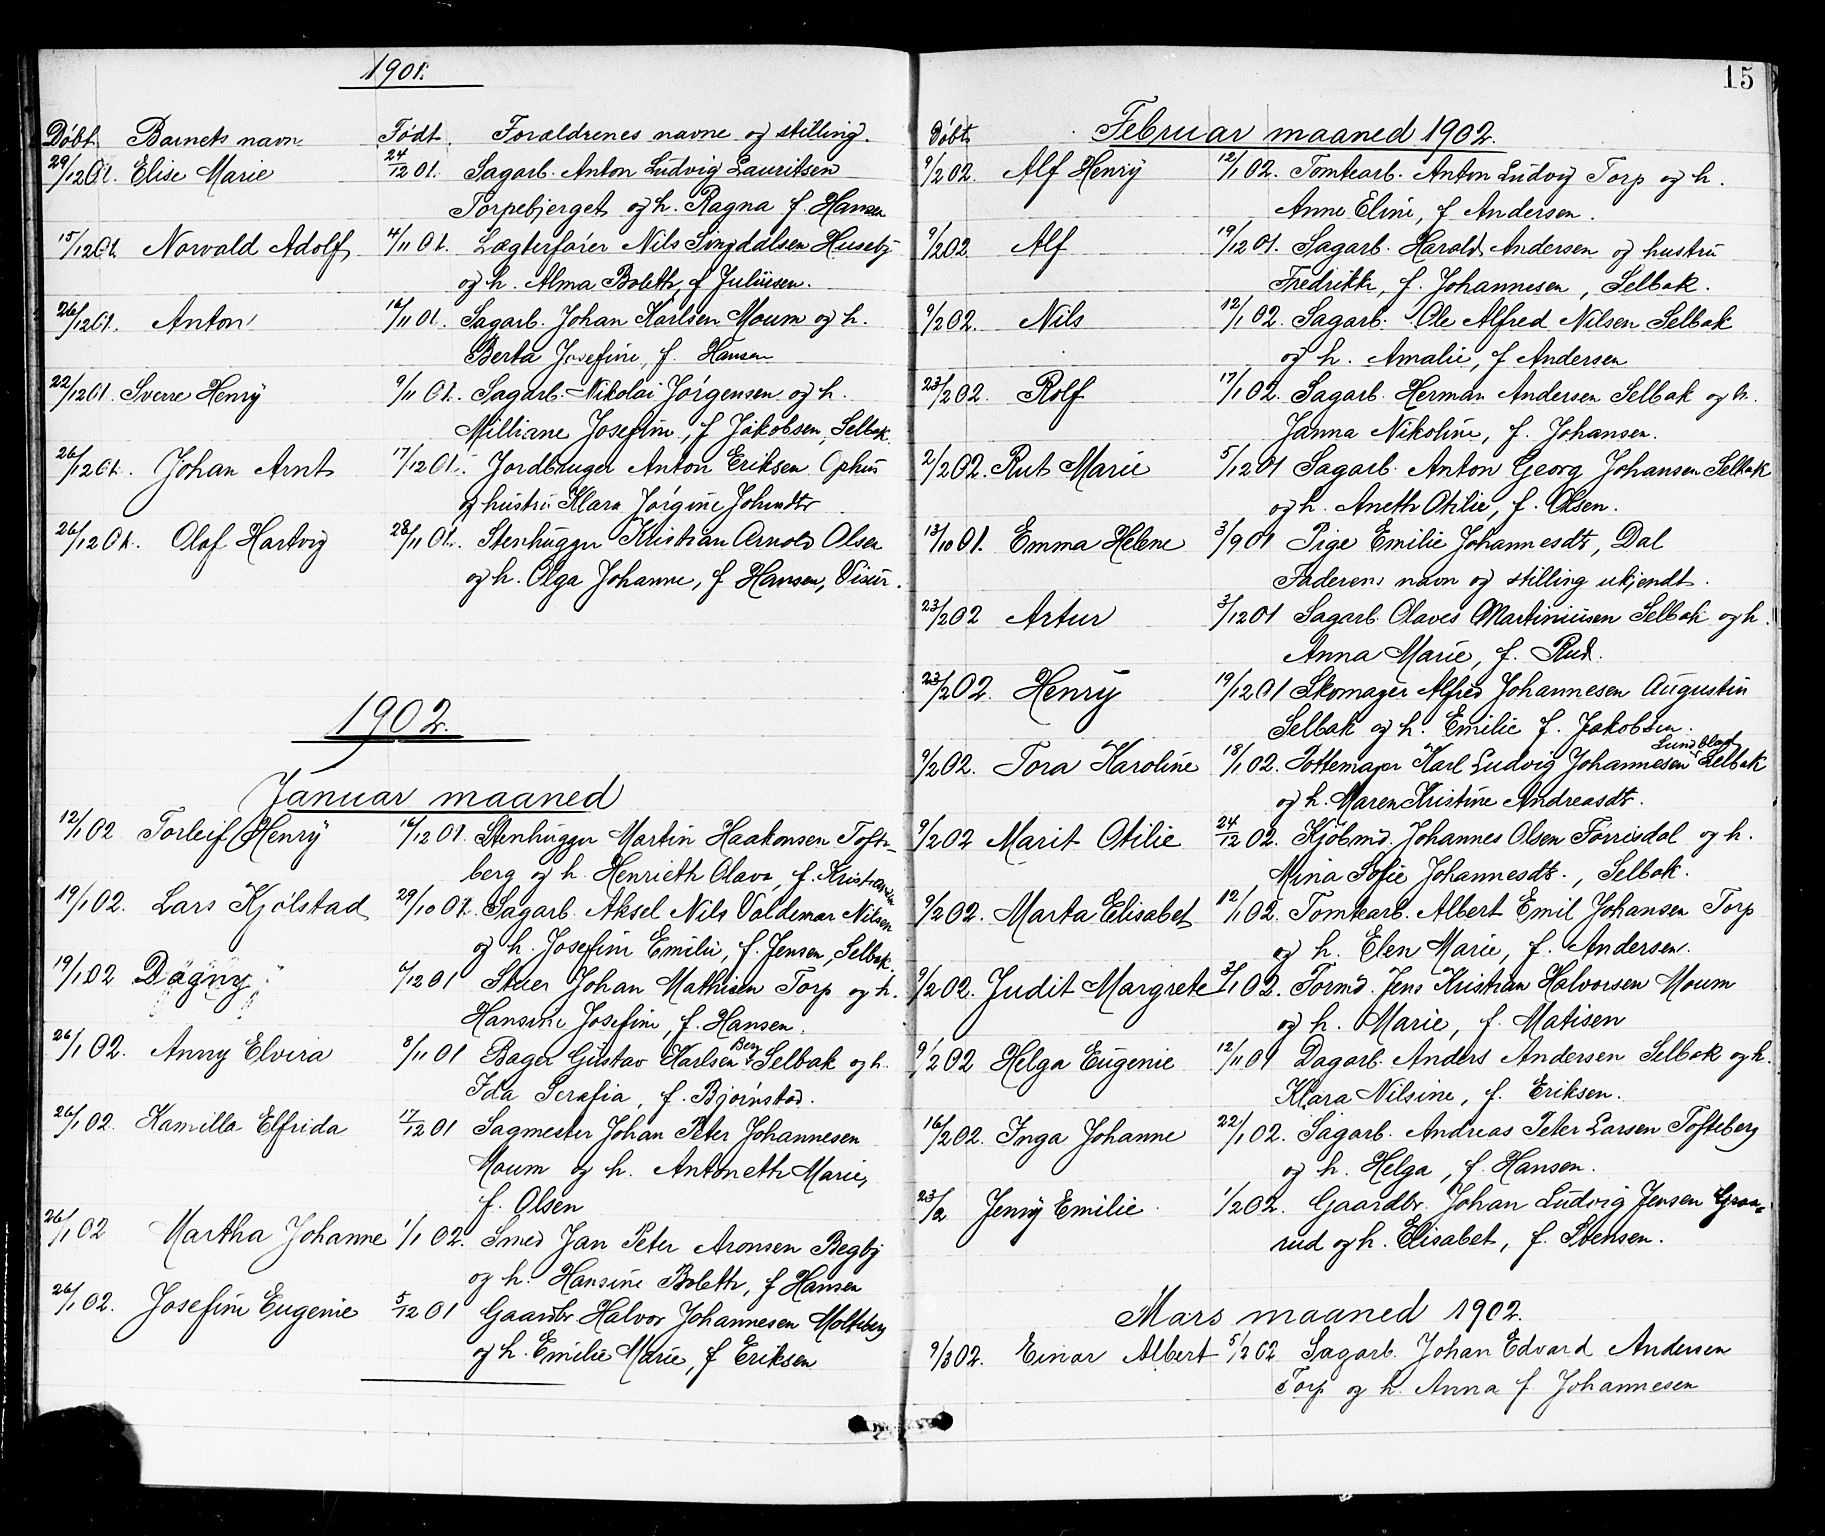 1901.
Døbt Barnets navn Født. Forældrenes navne og stilling.
29/12 01. Elise Marie 24/12 01. Sagarb. Anton Ludvig Lauritsen
Torpebjerget og h. Ragna f. Hansen
15/12 01. Norvald Adolf 4/11 01. Lægterfører Nils Huseby
og h. Alma Boleth, f. Juliusen.
26/12 01. Anton 16/11 01. Sagarb. Johan Karlsen Moum og h.
Berta Josefine, f. Hansen
22/12 01 Sverre Henry 9/11 01. Sagarb. Nikolai Jørgensen og h.
Milliane Josefine, f. Jakobsen, Selbak.
26/12 01. Johan Arnt 17/12 01. Jordbruger Anton Eriksen Ophus
og hustru Klara Jørgine Johnsdtr
26/12 01. Olaf Hartvig 28/11 01. Stenhugger Kristian Arnold Olsen
og h. Olga Johanne, f. Hansen, Visur.
1902.
Januar maaned
12/1 02 Torleif Henry 16/12 01. Stenhugger Martin Haakonsen Tofte-
berg og h. Henrieth Olava, f. Kristiansen
19/1 02. Lars Kjølstad 29/10 01. Sagarb. Aksel Nils Valdemar Nilsen
og h. Josefine Emilie, f. Jensen, Selbak.
19/1 02 Dagny 6/12 01 Stuer Johan Mathisen Torp og h.
Hansine Josefine, f. Hansen.
26/1 02. Anny Elvira 8/11 01 Bager Gustav Karlsen Berg Selbak og h.
Ida Serafia, f. Bjørnstad.
26/1 02. Kamilla Elfrida 17/12 01 Sagmester Johan Peter Johannesen
Moum og h. Antoneth Marie,
f. Olsen
26/1 02 Martha Johanne 1/1 02. Smed Jan Peter Aronsen Begby
og h. Hansine Boleth, f. Hansen
26/1 02. Josefine Eugenie 5/12 01 Gaardbr. Halvor Johannesen Molteberg
og h. Emilie Marie, f. Eriksen
15
Døbt Februar maaned 1902.
9/2 02. Alf Henry 12/1 02. Tomtearb. Anton Ludvig Torp og h.
Anne Eline, f. Andersen.
9/2 02. Alf 19/12 01. Sagarb. Harald Andersen og hustru
Fredrikke, f. Johannesen, Selbak.
9/2 02. Nils 12/1 02. Sagarb. Ole Alfred Nilsen Selbak
og h. Amalie, f. Andersen
23/2 02. Rolf 17/1 02. Sagarb. Herman Andersen Selbak og h.
Janna Nikoline, f. Johansen.
2/2 02. Rut Marie 5/12 01 Sagarb. Anton Georg Johansen Selbak
og h. Aneth Otilie, f. Olsen.
13/10 01. Emma Helene 3/9 01 Pige Emilie Johannesdtr, Dal
Faderens navn og stilling ukjendt.
23/2 02 Artur 3/12 01 Sagarb. Olaves Martiniusen Selbak og h.
Anna Marie, f. Rud.
23/2 02. Henry 19/12 01 Skomager Alfred Johannesen Augustin
Selbak og h. Emilie f. Jakobsen.
9/2 02. Tora Karoline 18/1 02. Pottemager Karl Ludvig Johannesen Lundblad Selbak
og h. Maren Kristine Andreasdtr.
9/2 02 Marit Otilie 24/12 02. Kjøbmd. Johannes Olsen Forrisdal og h.
Mina Sofie Johannesdtr., Selbak.
9/2 02. Marta Elisabet 12/1 02. Tomtearb. Albert Emil Johansen Torp
og h. Elen Marie, f. Andersen.
9/2 02. Judit Margrete 3/1 02. Formd. Jens Kristian Halvorsen Moum
og h. Marie, f. Matisen
9/2 02 Helga Eugenie 12/11 01 Dagarb. Anders Andersen Selbak og h.
Klara Nilsine, f. Eriksen.
16/2 02. Inga Johanne 22/1 02. Sagarb. Andreas Peter Larsen Tofteberg
og h. Helga, f. Hansen.
23/2 Jenny Emilie 1/2 02. Gaardbr. Johan Ludvig Jensen Graa-
rud og h. Elisabet, f. Stensen.
Mars maaned 1902.
9/3 02. Einar Albert 5/2 02 Sagarb. Johan Edvard Andersen
Torp og h. Anna f. Johannesen